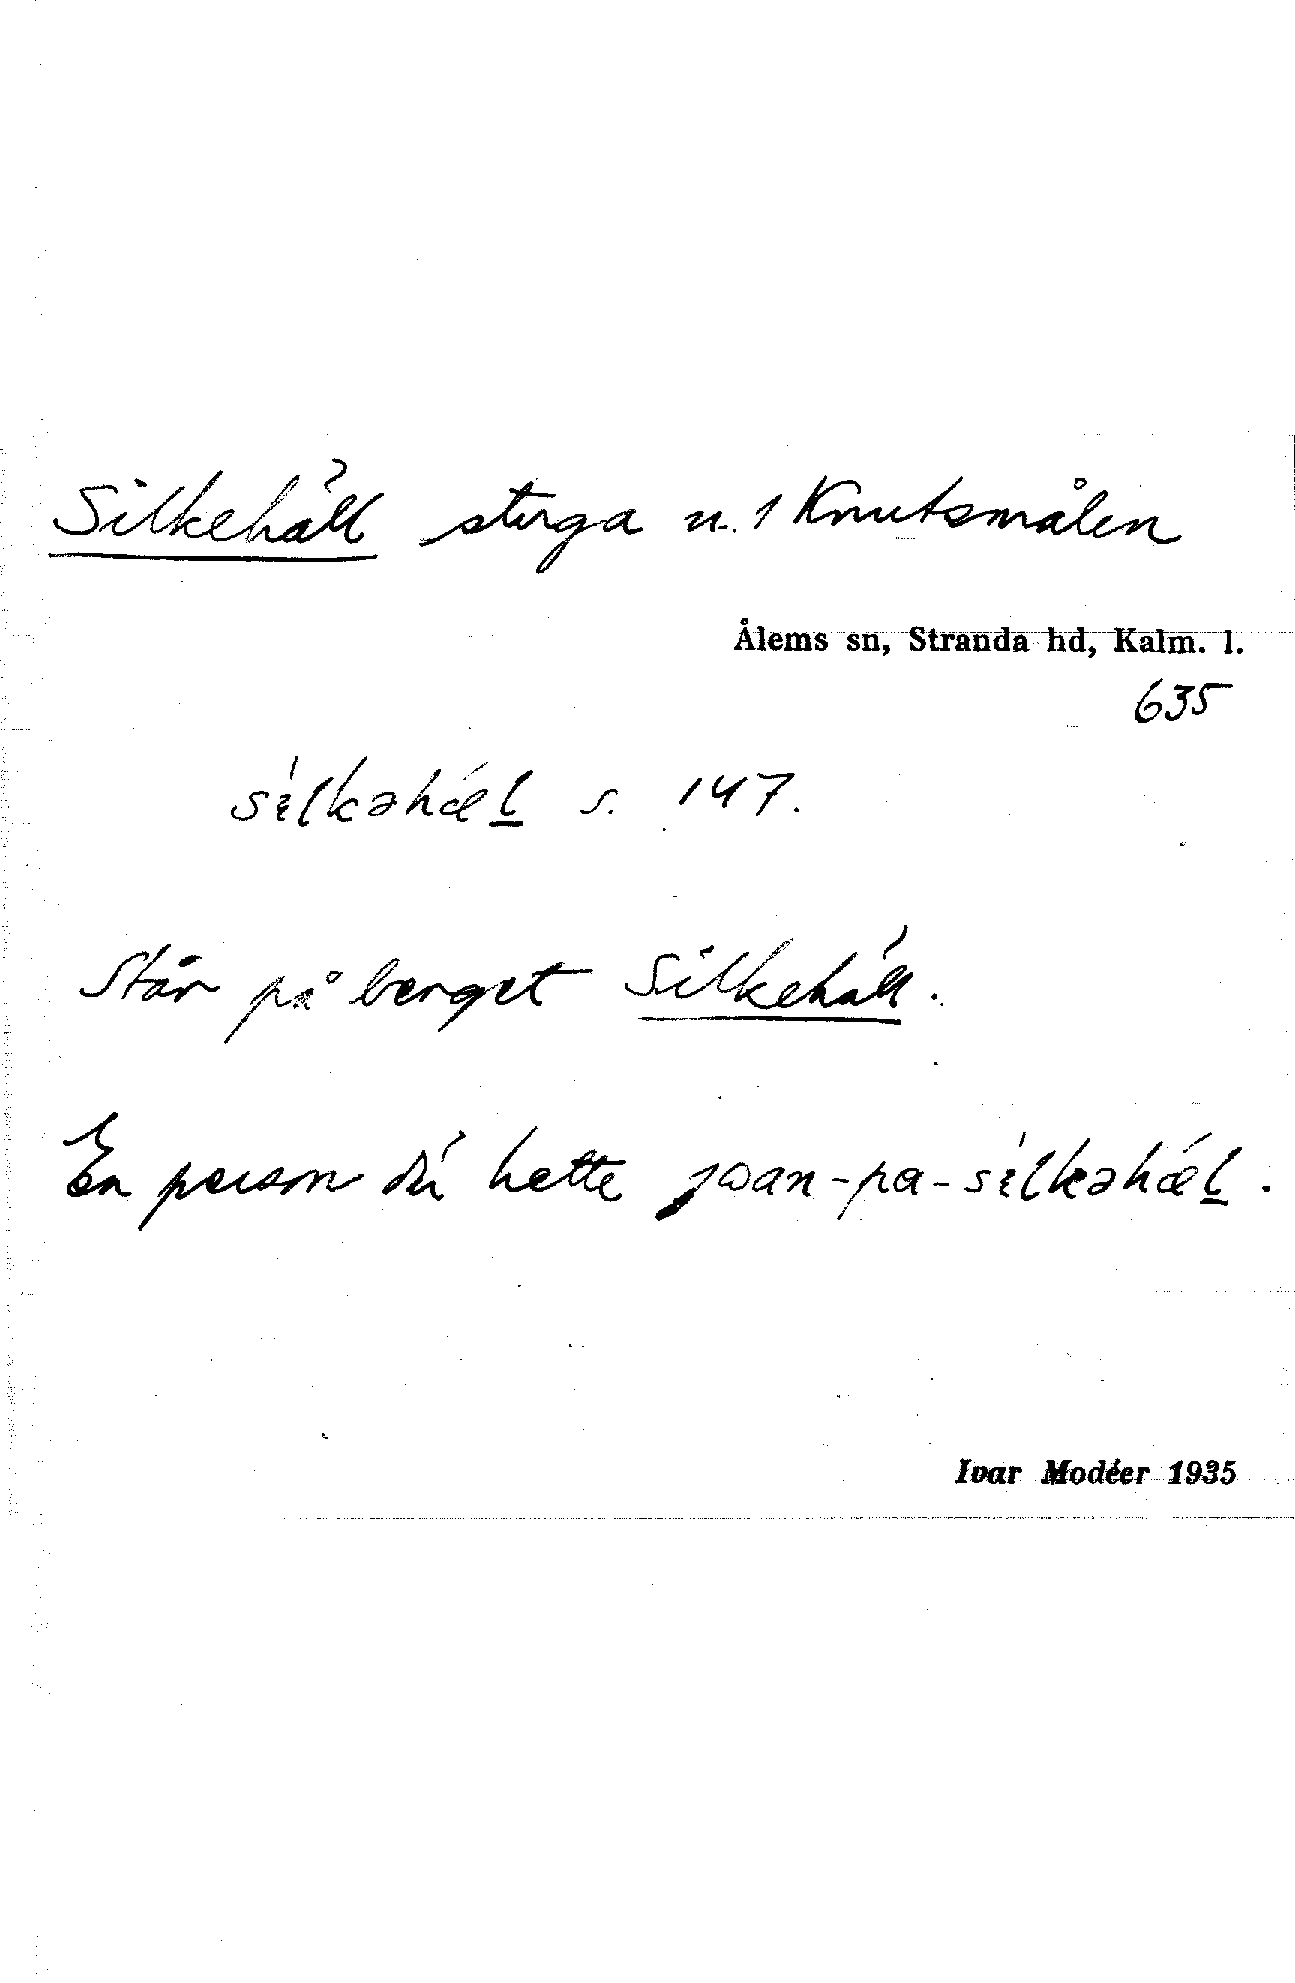 Silkehäll stuga n. 1 Knutsmålen
Ålems sn, Stranda hd, Kalm. l.
635
silkəhæl s. 147.
Står på berget Silkehäll.
En person där hette joan-pa-silkəhæl.
Ivar Modéer 1935